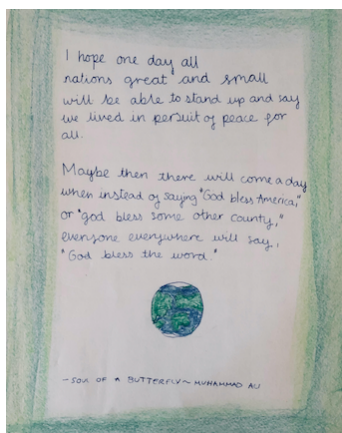 I hope one day all
nations great and small
will be able to stand up and say
we lived in persuit of peace for
all.
Maybe then there will come a day
when instead of saying "God bless America,"
or "god bless some other county,"
everyone everywhere will say,
"God bless the word."
~SOUL OF A BUTTERFLY~ MUHAMMAD ALI